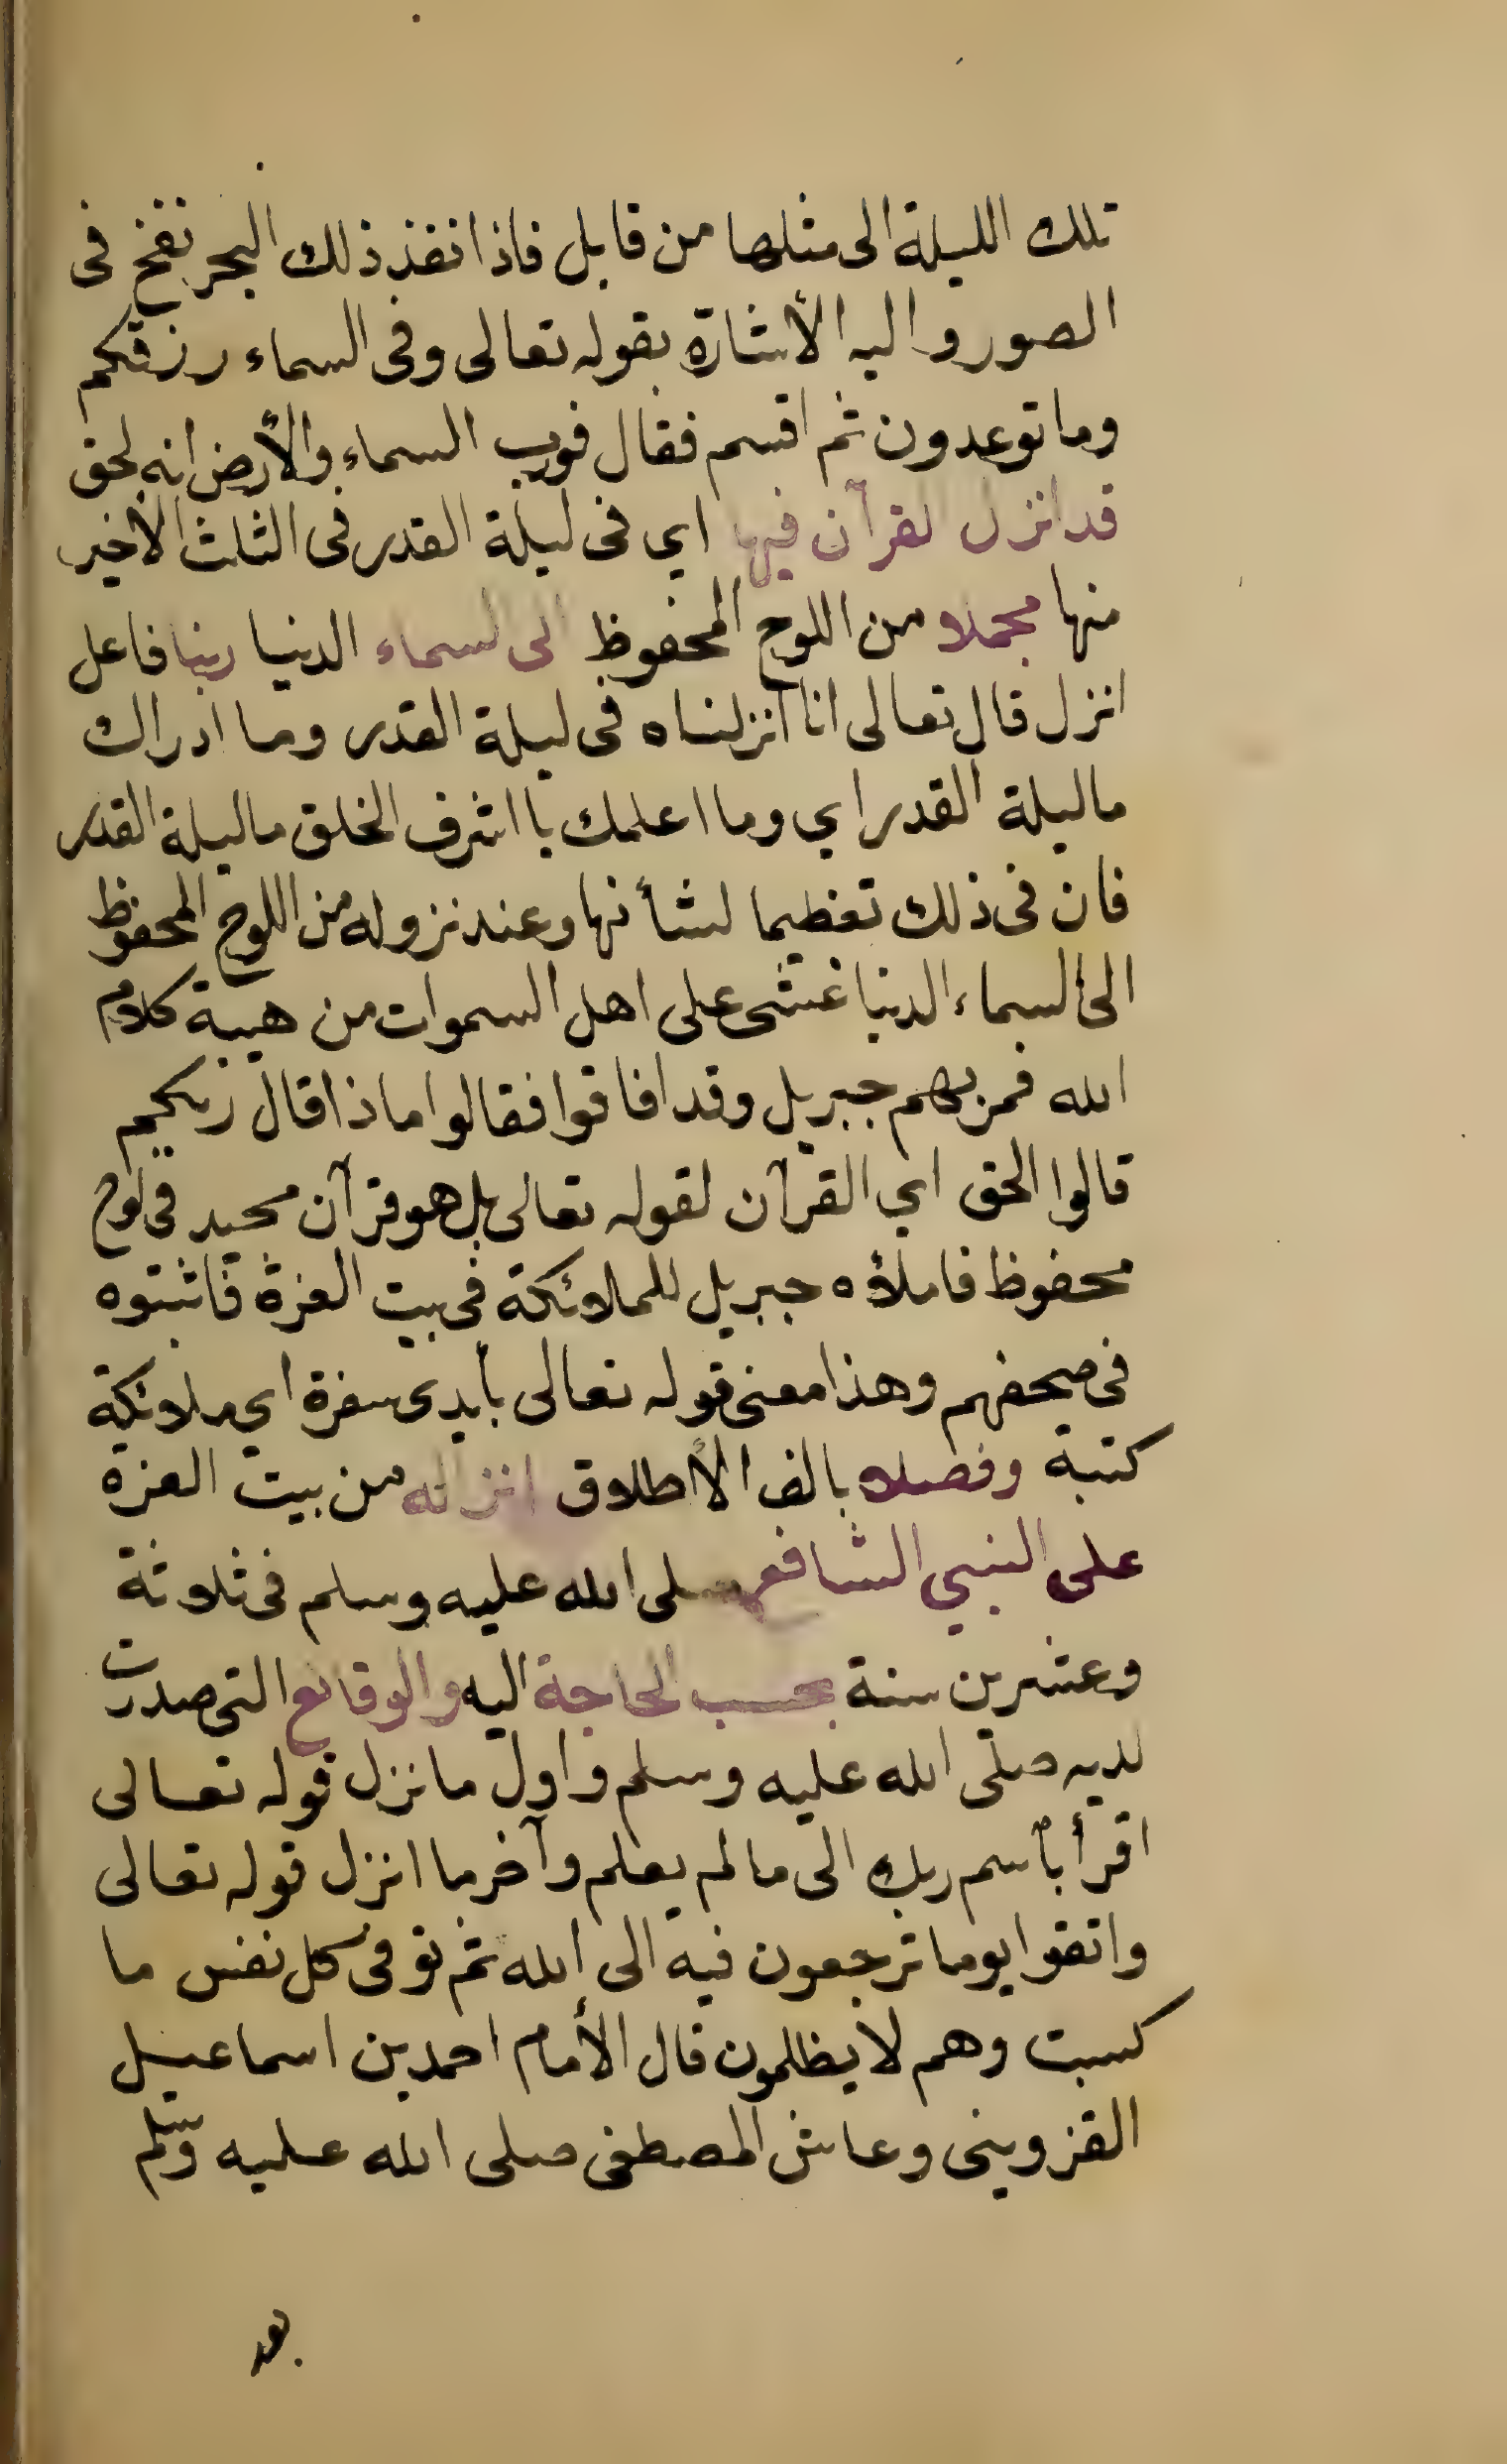 تلك الليلة الى مثلها من قابل فاذا نفذ ذلك البحر نفخ فى
الصور واليه الأشارة بقوله تعالى وفى السماء رزقكم
وما توعدون ثم اقسم فقال فورب السماء والأرض انه لحق
قد انزل القرآن فيها اي فى ليلة القدر فى الثلث الاخير
منها مجملا من اللوح المحفوظ الى السماء الدنيا ربنا فاعل
انزل قال تعالى انا انزلناه فى ليلة القدر وما ادراك
ما ليلة القدر اي وما اعلمك يا اشرف الخلق ما ليلة القدر
فان فى ذلك تعظيما لشأنها وعند نزوله من اللوح المحفوظ
الى السماء الدنيا غشى على اهل السموات من هيبة كلام
الله فمر بهم جبريل وقد افاقوا فقالوا ماذا قال ربكم
قالوا الحق اي القرآن لقوله تعالى بل هو قرآن مجيد فى لوح
محفوظ فاملاؤه جبريل للملائكة فى بيت العزة فاثبتوه
فى صحفهم وهذا معنى قوله تعالى بأيدى سفرة اي ملائكة
كتبة وفصلا بالف الأطلاق انزاله من بيت العزة
على النبي الشافع صلى الله عليه وسلم فى ثلاثة
وعشرين سنة بحسب الحاجة اليه والوقائع التى صدرت
لديه صلى الله عليه وسلم واول ما نزل قوله تعالى
اقرأ بأسم ربك الى ما لم يعلم وآخر ما انزل قوله تعالى
واتقوا يوما ترجعون فيه الى الله ثم توفى كل نفس ما
كسبت وهم لا يظلمون قال الأمام احمد بن اسماعيل
القزوينى وعاش المصطفى صلى الله عليه وسلم
بعد